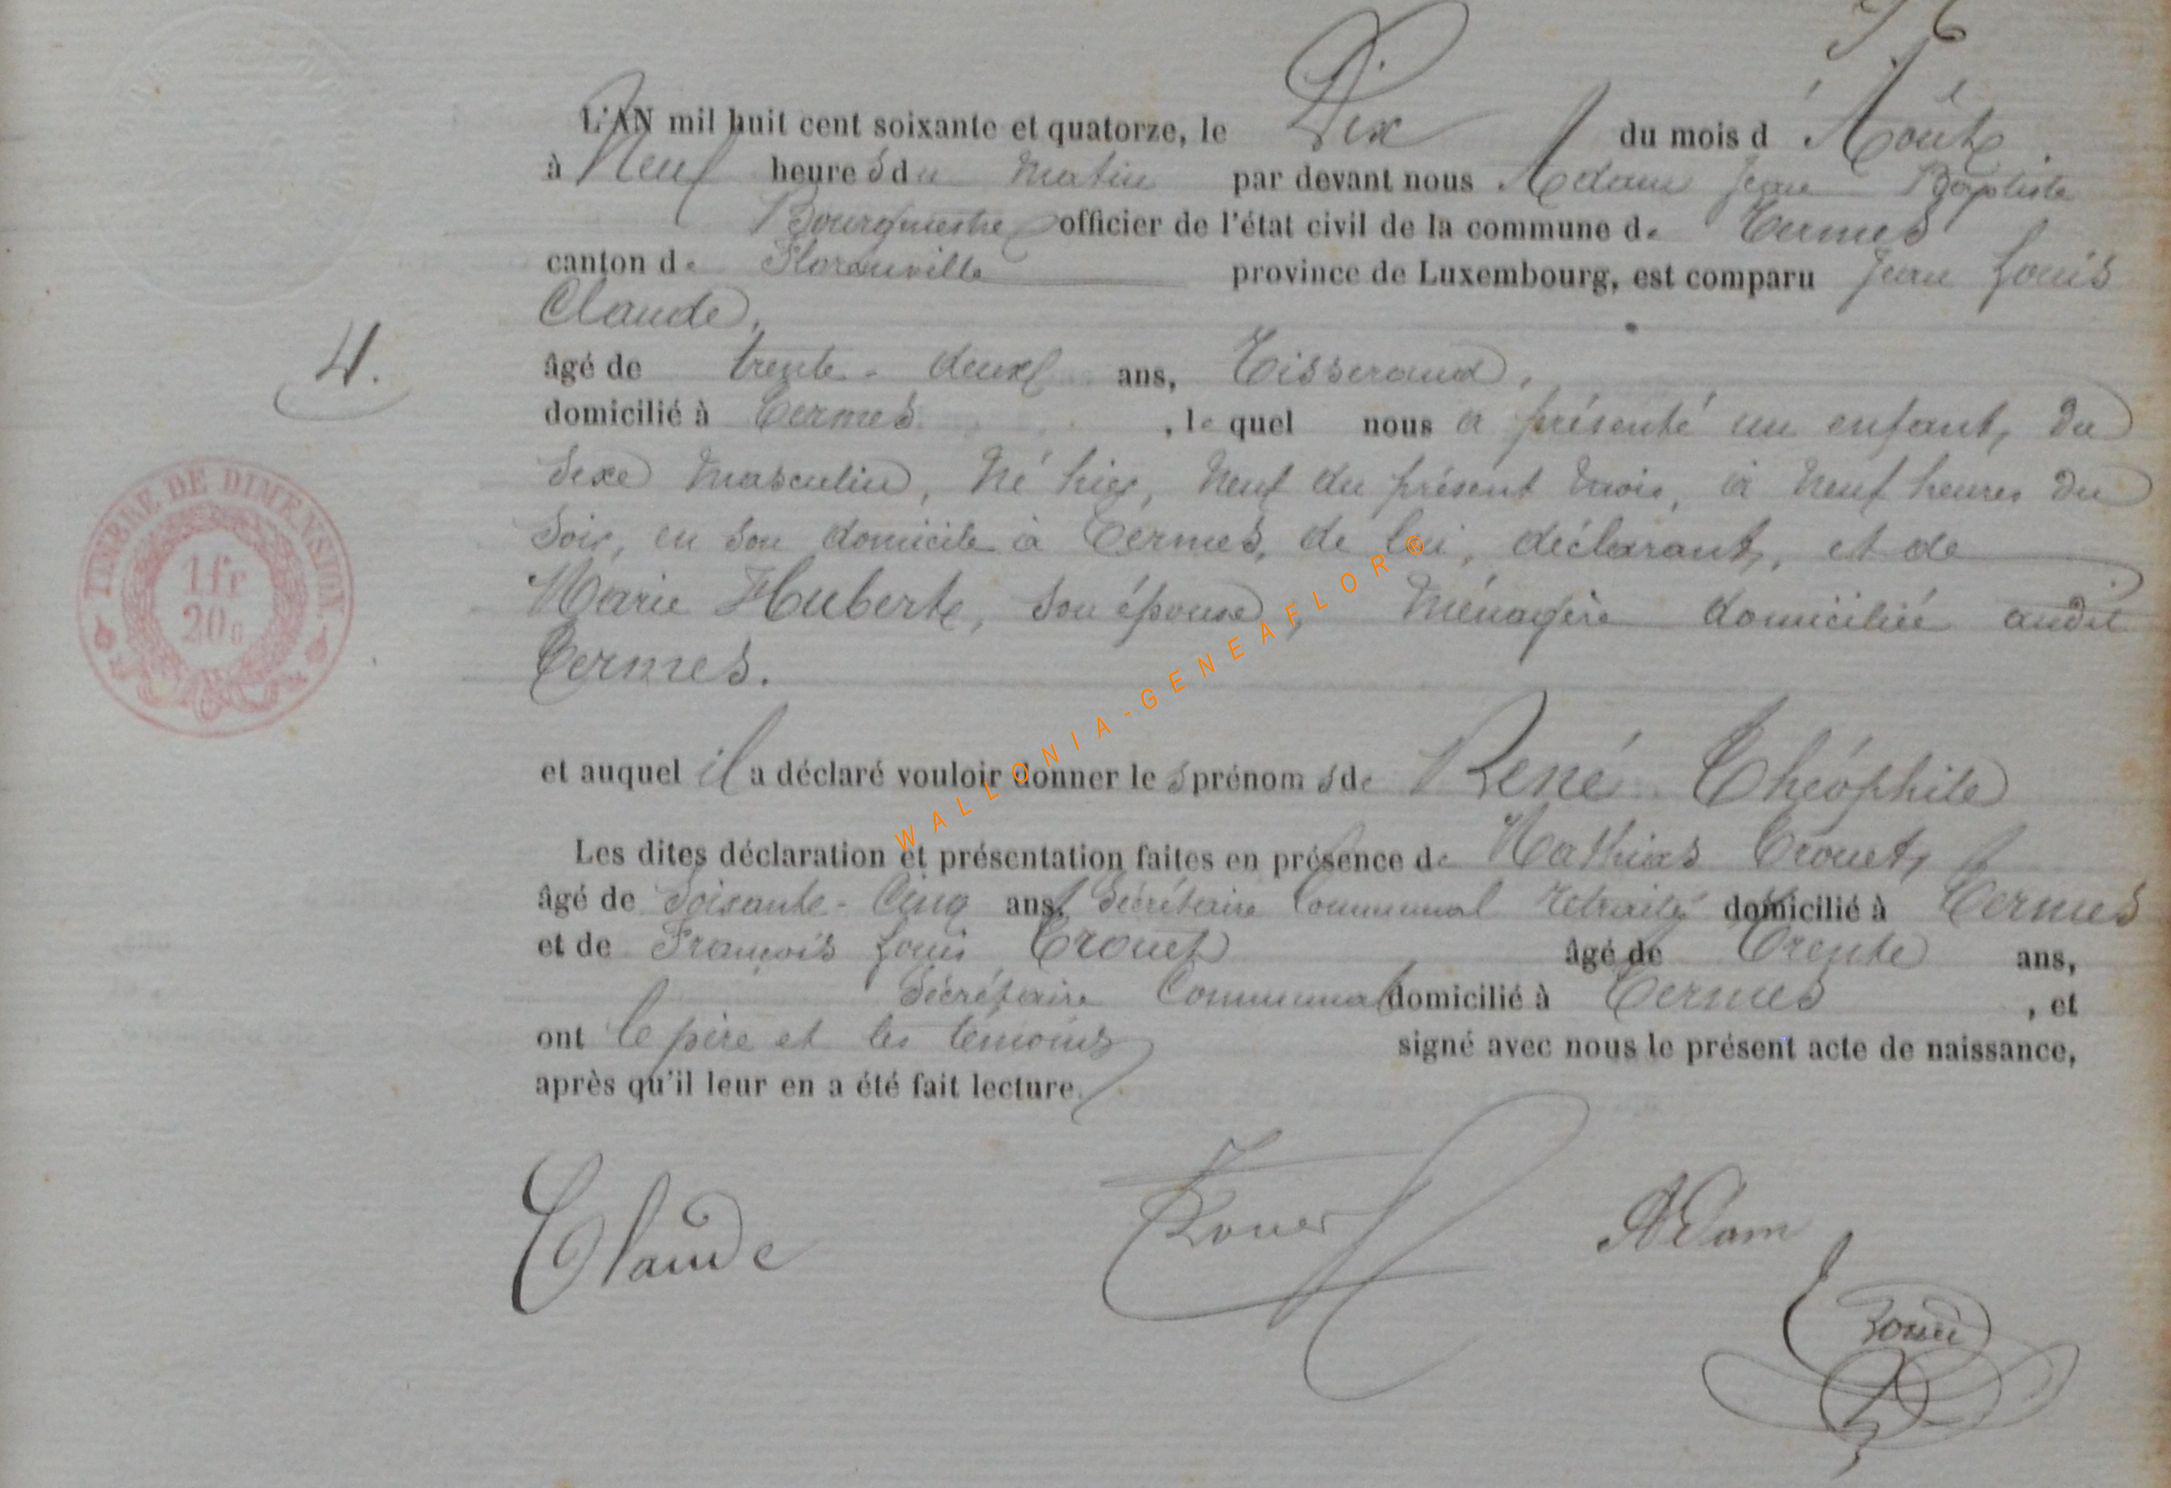 L'AN mil huit cent soixante et quatorze, le Dix du mois d'Août
à Neuf heures du matin par devant nous Adam Jean Baptiste
Bourgmestre officier de l'état civil de la commune de Termes
canton de Florenville province de Luxembourg, est comparu Jean Louis
Claude,
4.
âgé de trente-deux ans, Tisserand,
domicilié à Termes, lequel nous a présenté un enfant, du
sexe masculin, né hier, neuf du présent mois, à neuf heures du
soir, en son domicile à Termes, de lui, déclarant, et de
Marie Hubert, son épouse, Ménagère domiciliée audit
Termes.
TIMBRE DE DIMENSION.
1 fr
20 c
et auquel il a déclaré vouloir donner les prénoms de René Théophile
Les dites déclaration et présentation faites en présence de Mathias Trouet,
âgé de soixante-cinq ans, Secrétaire Communal retraité domicilié à Termes
et de François Louis Trouet âgé de Trente ans,
Secrétaire Communal domicilié à Termes, et
ont le père et les témoins signé avec nous le présent acte de naissance,
après qu'il leur en a été fait lecture.
WALLONIA-GENEAFLOR ®
Claude Trouet Adam
Trouet